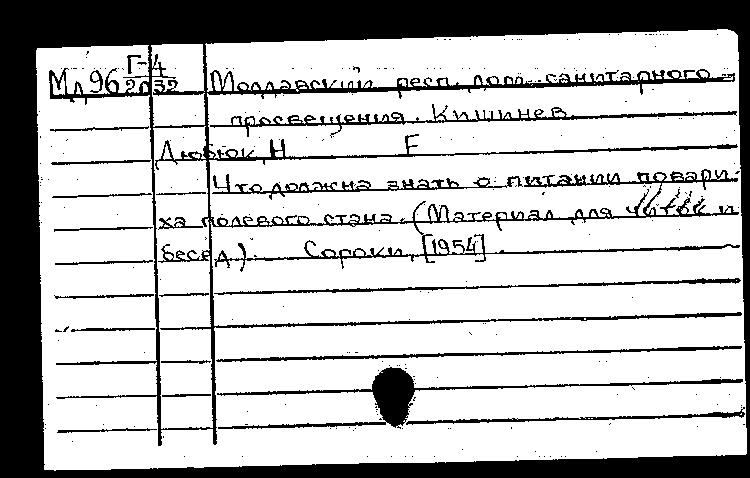 Мд 96 Г-4/2032 Молдавский респ. дом санитарного
просвещения. Кишинев.
Дюбюк, Н Е
Что должна знать о питании повари-
ха полевого стана. (Материал для читки и
бесед). Сороки, [1954].